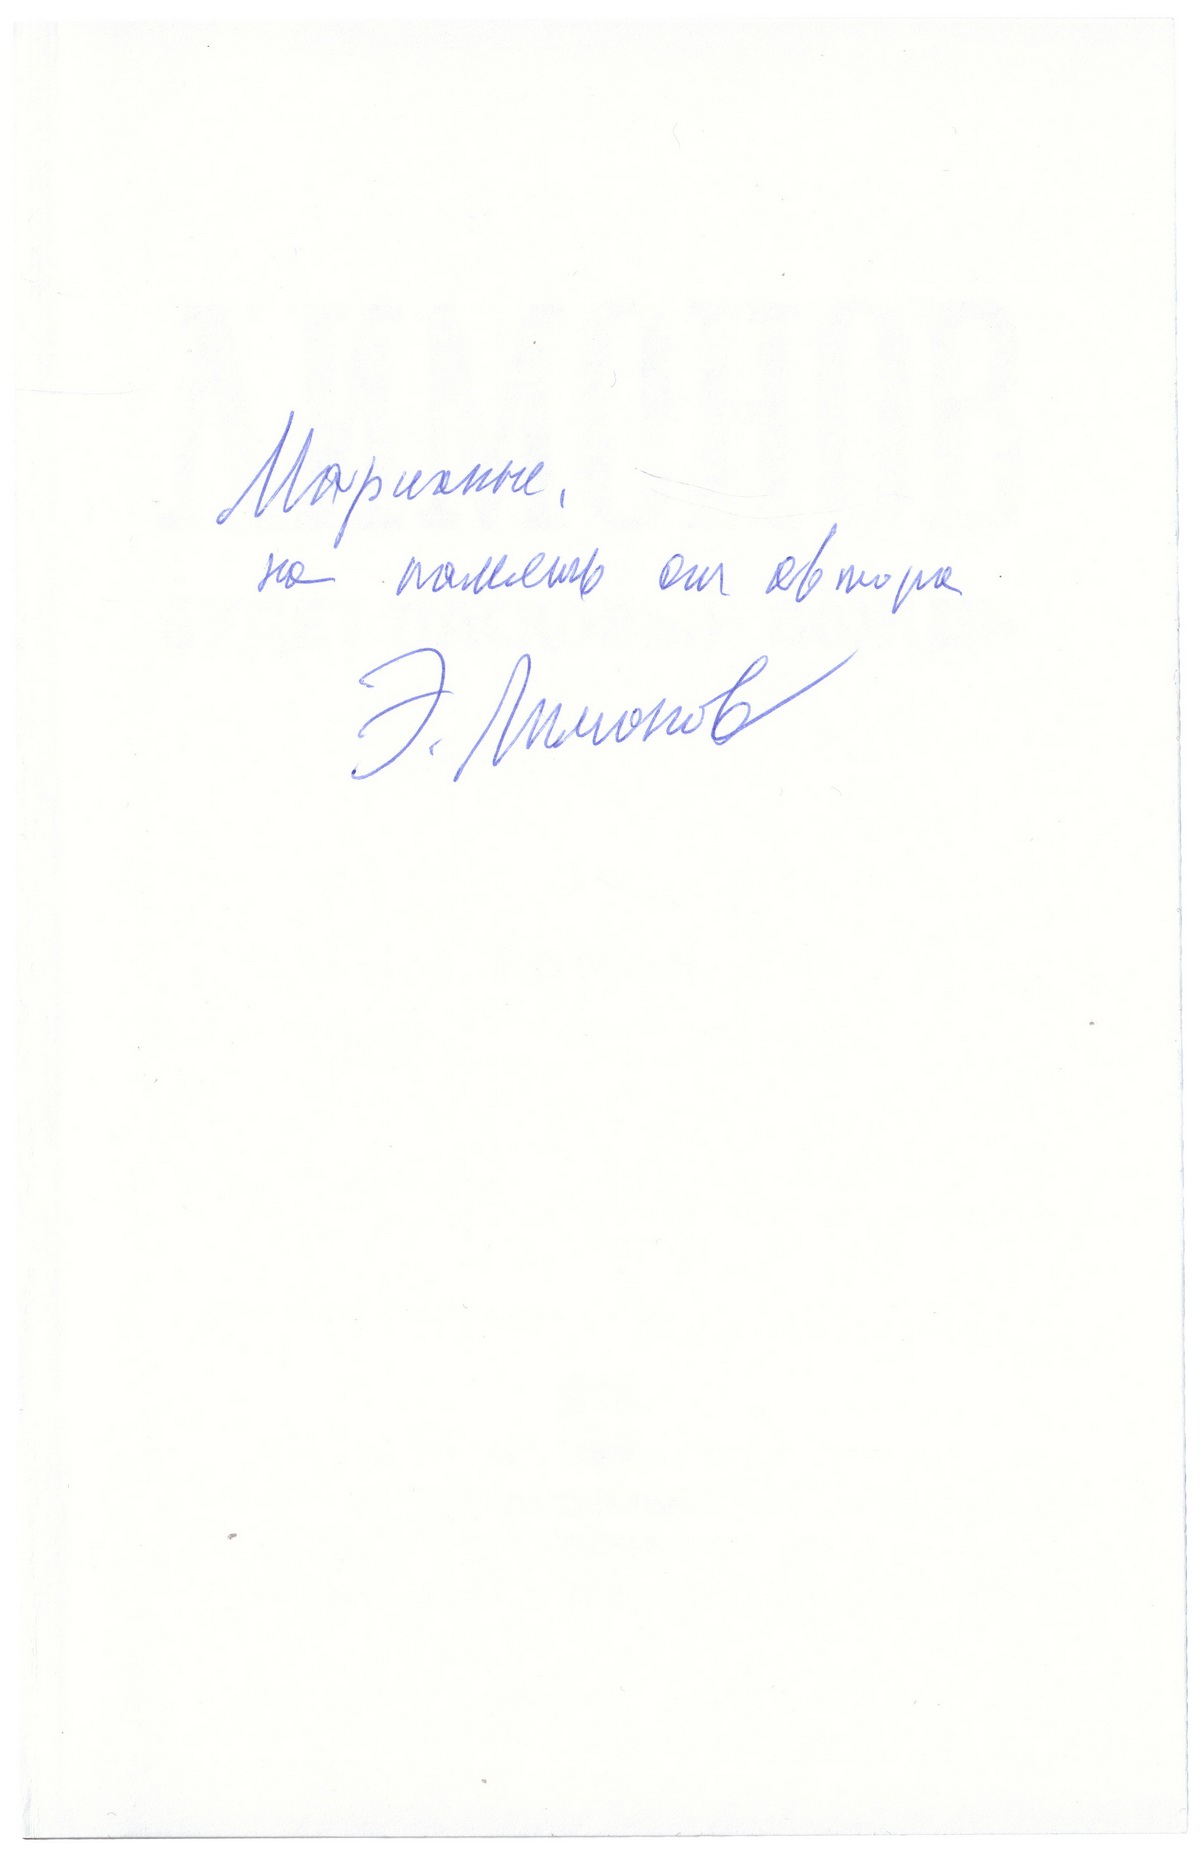 Марианне,
на память от автора
Э. Лимонов